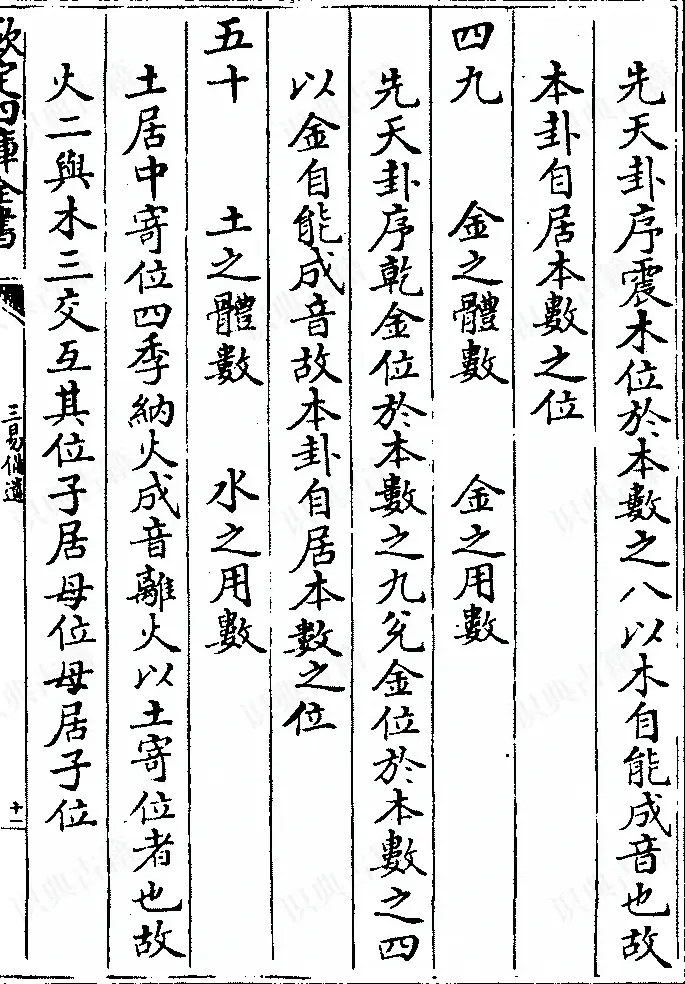 先天卦序震木位於本數之八以木自能成音也故
本卦自居本數之位
四九 金之體數 金之用數
先天卦序乾金位於本數之九兊金位於本數之四
以金自能成音故本卦自居本數之位
五十 土之體數 水之用數
土居中寄位四季納火成音離火以土寄位者也故
火二與木三交互其位子居母位母居子位
欽定四庫全書
三易備遺
十二